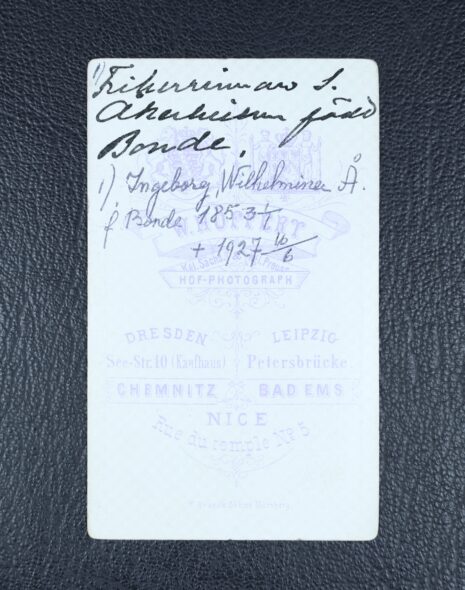 1) Friherrinnan S.
Åkerhielm född
Bonde.
1) Ingeborg, Wilhelmina Å.
f Bonde 1853 1/1
+ 1927 16/6
W. HÖFFERT
Kgl. Sächs. Kgl. Preuss.
HOF-PHOTOGRAPH
DRESDEN LEIPZIG
See-Str. 10 (Kaufhaus) Petersbrücke
CHEMNITZ BAD EMS
NICE
Rue du temple No 5